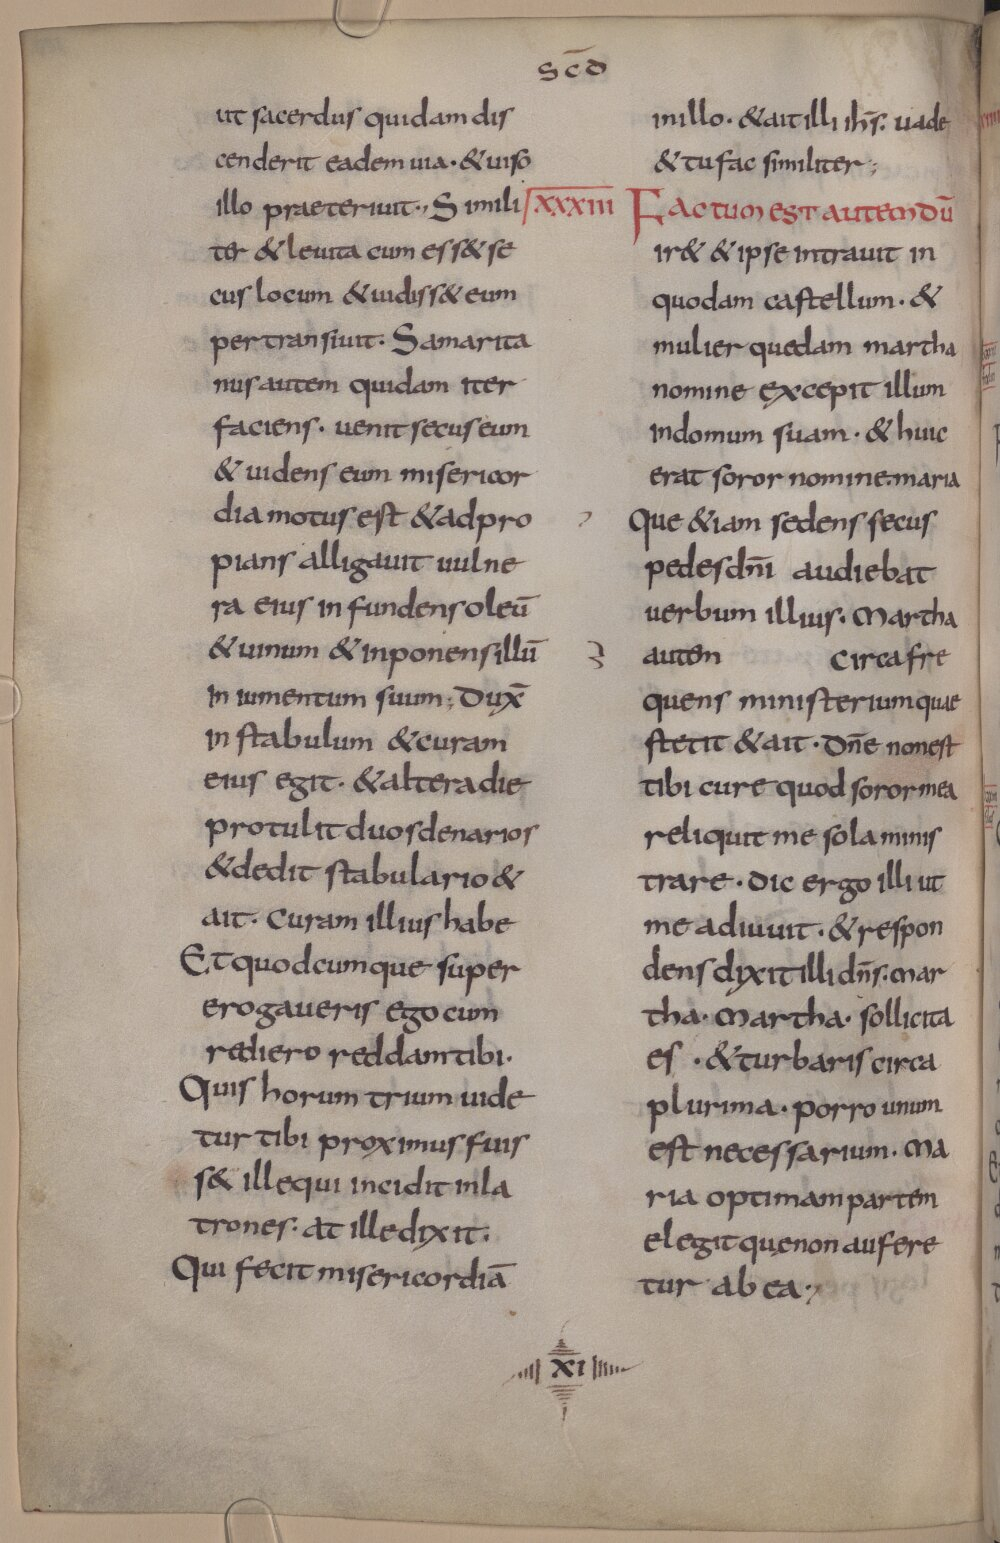 SCD̄
ut sacerdus quidam dis
cenderit eadem uia · & uiso
illo praeteriuit ·, Simili
ter & leuita cum ess& se
cus locum & uidiss& eum
pertransiuit · Samarita
nus autem quidam iter
faciens · uenit secus eum
& uidens eum misericor
dia motus est & adpro
pians alligauit uulne
ra eius infundens oleū
& uinum & inponens illū
in iumentum suum ; Dux̄
in stabulum & curam
eius egit · & altera die
protulit duos denarios
& dedit stabulario &
ait · Curam illius habe
Et quodcumque super
erogaueris ego cum
rediero reddam tibi ·
Quis horum trium uide
tur tibi proximus fuis
s& ille qui incidit in la
trones · at ille dixit ·
Qui fecit misericordiā
in illo · & ait illi ih̄s · uade
& tu fac similiter ;
XXXIII Factum est autem dū
ir& & ipse intrauit in
quodam castellum · &
mulier quedam martha
nomine excepit illum
in domum suam · & huic
erat soror nomine maria
Que &iam sedens secus
pedes dn̄i audiebat
uerbum illius · Martha
autem circa fre
quens ministerium quae
stetit & ait · Dn̄e non est
tibi cure quod soror mea
reliquit me sola minis
trare · Dic ergo illi ut
me adiuuit · & respon
dens dixit illi dn̄s · Mar
tha · Martha · sollicita
es · & turbaris circa
plurima · porro unum
est necessarium · Ma
ria optimam partem
elegit que non aufere
tur ab ea ·,
XI